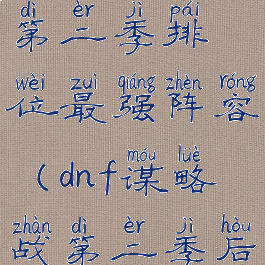 dì èr jì pái
第二季排
wèi zuì qiáng zhèn róng
位最强阵容
móu lüè
(dnf谋略
zhàn dì èr jì hòu
战第二季后